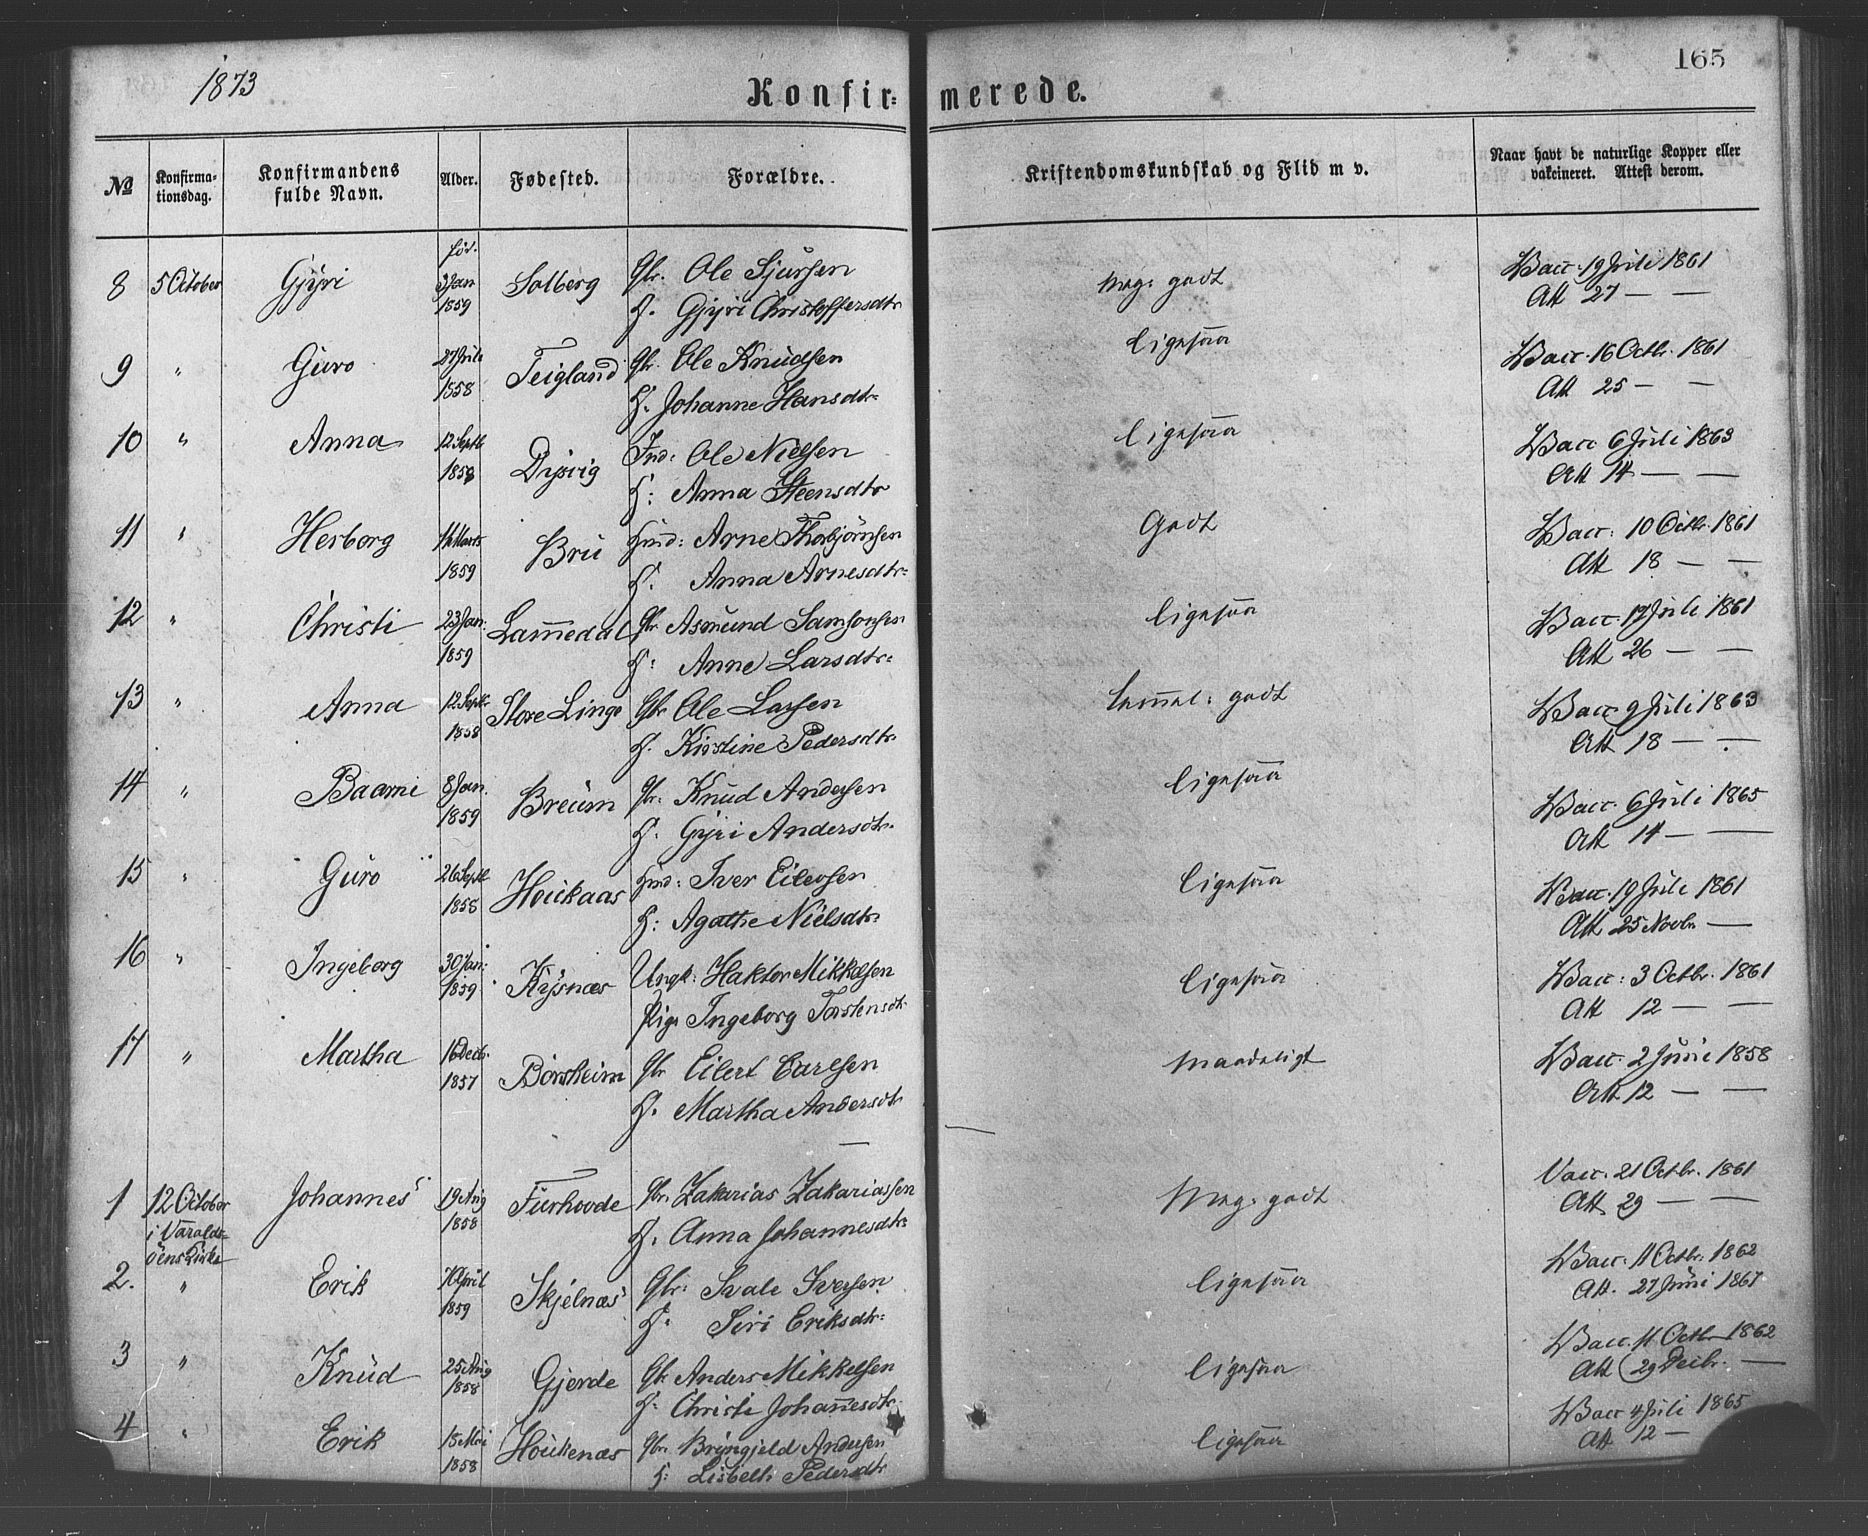 1873
165
Konfir= merede.
№ Konfirma-tionsdag. Konfirmandens fulde Navn. Alder. Fødested. Forældre. Kristendomskundskab og Flid m v. Naar havt de naturlige Kopper eller vakcineret. Attest derom.
fød.
8 5 October Gjyri 3 Jan 1859 Solberg Gbr. Ole Sjursen Meg: godt Vacc. 19 Juli 1861
H. Gjyri Christoffersdtr Att 27 — —
9 " Guro 27 Juli 1858 Teigland Gbr. Ole Knudsen ligesaa Vacc. 16 Octbr. 1861
H. Johanne Hansdtr Att 25 — —
10 " Anna 12 Septb 1858 Dysvig Ind: Ole Nielsen ligesaa Vacc 6 Juli 1863
H: Anna Steensdtr Att 14 — —
11 " Herborg 14 Marts 1859 Bru Huusd: Arne Thorbjørnsen Godt Vacc: 10 Octbr 1861
H. Anna Arnesdtr Att 18 — —
12 " Christi 23 Jan. 1859 Lammedal Gbr Asmund Samsonsen ligesaa Vacc. 17 Juli 1861
H: Anne Larsdtr Att 26 — —
13 " Anna 12 Septbr 1858 Store Linge Gbr Ole Larsen temmel: godt Vacc 9 Juli 1863
H. Kirstine Pedersdtr Att 18 — —
14 " Baarni 8 Jan. 1859 Breüm Gbr: Knud Andersen ligesaa Vacc. 6 Juli 1865
H. Gyri Andersdtr Att 14 — —
15 " Guro 26 Septb 1858 Houkaas Huusd: Iver Eilevsen ligesaa Vacc. 19 Juli 1861
H: Agathe Nielsdtr Att 25 Novbr —
16 " Ingeborg 30 Jan: 1859 Kysnæs Ungk: Haktor Mikkelsen ligesaa Vacc: 3 Octbr. 1861
Pige Ingeborg Torstensdtr Att 12 — —
17 " Martha 16 Decb. 1857 Børsheim Gbr Eilert Carlsen maadeligt Vacc. 2 Juni 1858
H. Martha Andersdtr Att 12 — —
1 12 October i Varalds-øens Kirke Johannes 19 Aug 1858 Furhovde Gbr. Zakarias Zakariassen Meg: godt Vacc. 21 Octbr. 1861
H. Anna Johannesdtr Att 29 — —
2. " Erik 7 April 1859 Skjelnæs Gbr: Svale Iversen ligesaa Vacc. 11 Octbr. 1862
H. Siri Eriksdtr Att. 27 Juni 1867
3 " Knud 25 Aug 1858 Gjerde Gbr Anders Mikkelsen ligesaa Vacc. 11 Octbr 1862
H. Christi Johannesdtr Att 29 Decbr. —
4 " Erik 15 Mai 1858 Houkenæs Gbr. Bryngjeld Andersen ligesaa Vacc 4 Juli 1865
H: Lisbeth Pedersdtr Att 12 —